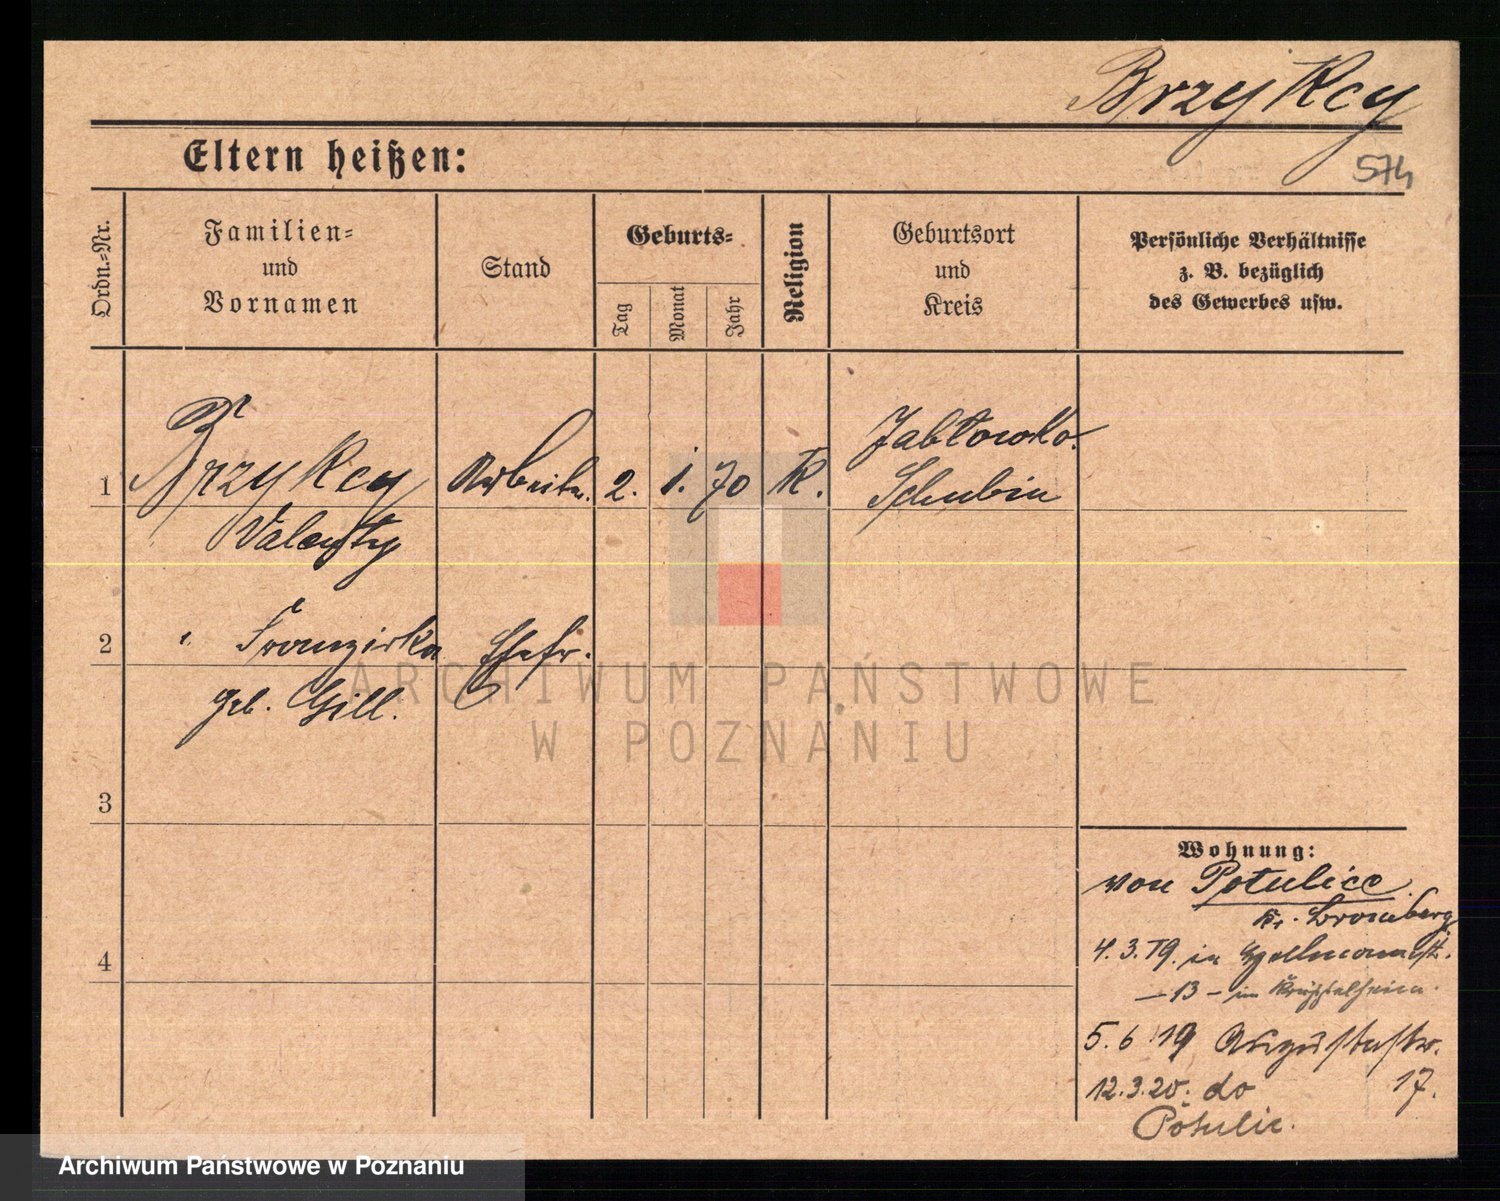 Brzykcy
574
Eltern heißen:
Ordn.-Nr.
Familien-
und
Vornamen
Stand
Geburts-
Tag
Monat
Jahr
Religion
Geburtsort
und
Kreis
Persönliche Verhältnisse
z. B. bezüglich
des Gewerbes usw.
1 Brzykcy Arbeiter. 2. 1. 70 K. Jabłowko.
Schubin
Valenty
2 " Franziska Ehefr.
geb. Gill.
3
4
Wohnung:
von Potulice
Kr. Bromberg
4.3.19. in
— 13 — im Krüppelheim.
5.6.19 Augustastr.
12.3.20. do 17.
Potulic.
ARCHIWUM PAŃSTWOWE
W POZNANIU
Archiwum Państwowe w Poznaniu